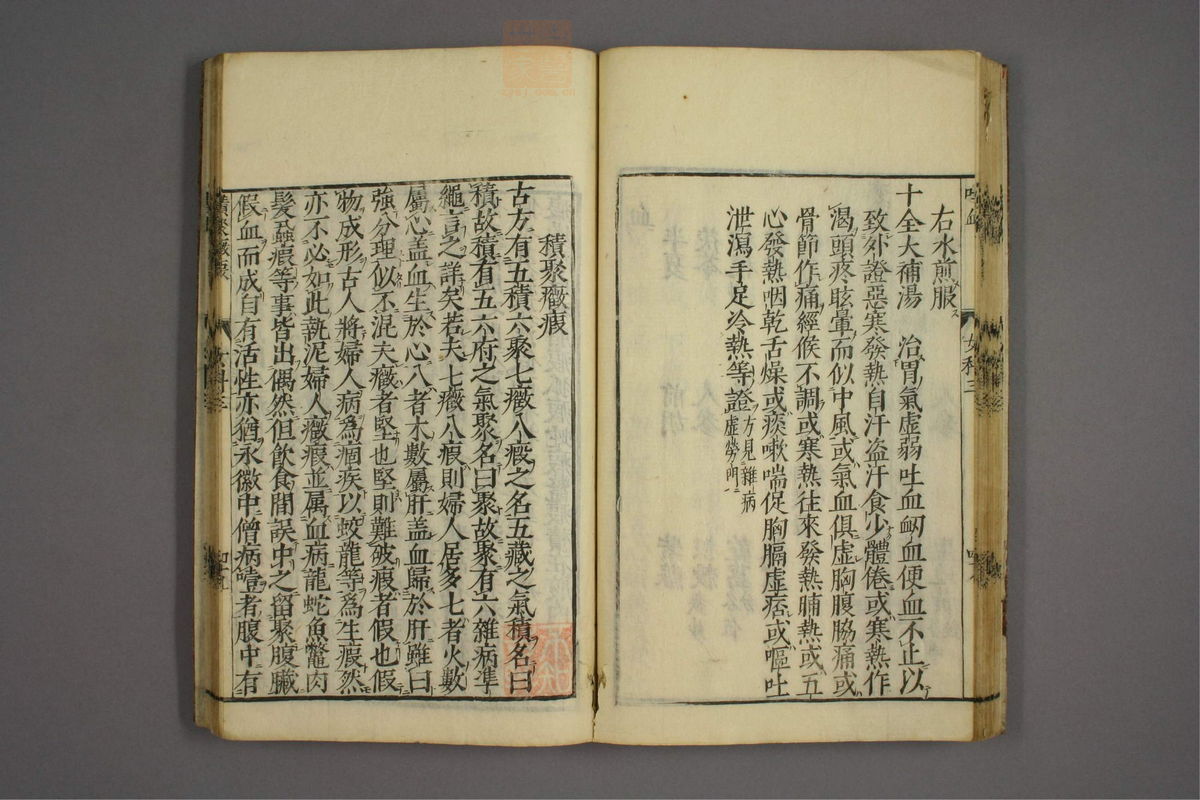 右水煎服
十全大補湯　治胃氣虛弱吐血衂血便血不止以
致外證惡寒發熱自汗盗汗食少體倦或寒熱作
渴頭疼眩暈而似中風或氣血俱虛胸腹脇痛或
骨節作痛經候不調或寒熱往來發熱脯熱或五
心發熱咽乾舌燥或痰嗽喘促胸膈虛痞或嘔吐
泄瀉手足冷熱等證方見雜病虛勞門
積聚癥瘕
古方有五積六聚七癥八瘕之名五藏之氣積名曰
積故積有五六府之氣聚名曰聚故聚有六雜病準
繩言之詳矣若夫七癥八瘕則婦人居多七者火數
屬心盖血生於心八者木數屬肝盖血歸於肝雖曰
強分理似不混夫癥者堅也堅則難破瘕者假也假
物成形古人將婦人病為痼疾以蛟龍等為生瘕然
亦不必如此執泥婦人癥瘕並属血病龍蛇魚鼈肉
髮蝨瘕等事皆出偶然但飲食間誤中之留聚腹臟
假血而成自有活性亦猶永徽中僧病噎者腹中有